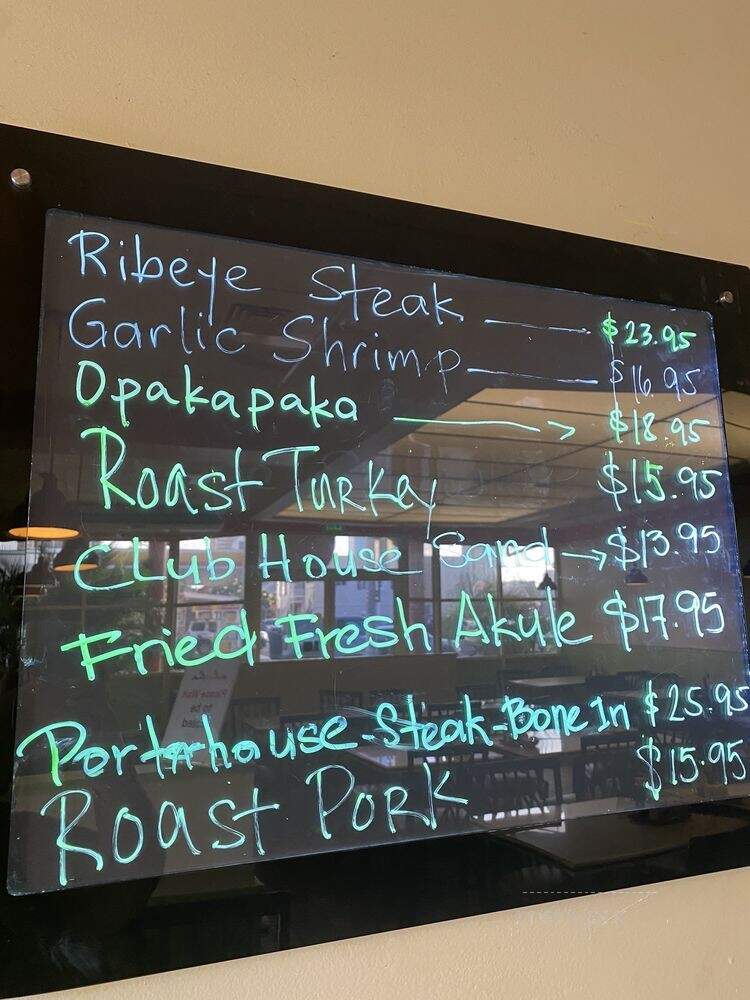 Ribeye Steak — $23.95
Garlic Shrimp — $16.95
Opakapaka → $18.95
Roast Turkey $15.95
Club House Sand → $13.95
Fried Fresh Akule $17.95
Porterhouse-Steak-Bone In $25.95
Roast Pork $15.95